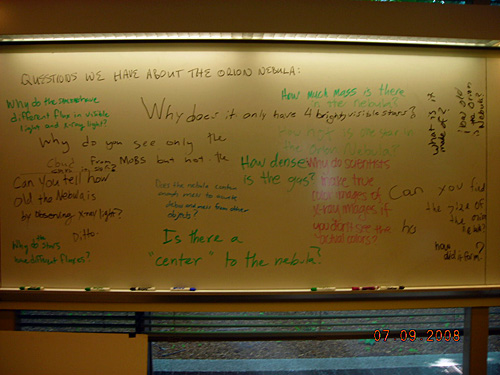 QUESTIONS WE HAVE ABOUT THE ORION NEBULA:
Why do the stars have
different flux in visible
light and x-ray light?
Why does it only have 4 brightly visible stars?
How much mass is there
in the nebula?
Why do you see only the
from MOBS but not the
How dense
is the gas?
Can you tell how
old the Nebula is
by observing x-ray light?
Ditto.
Why do stars
have different fluxes?
Does the nebula contain
enough mass to
from other
objects?
Is there a
"center" to the nebula?
Why do scientists
make true
color images of
x-ray images if
you don't see the
actual colors?
what is it
made of?
how old
is the Orion
Nebula?
Can you find
the size of
the
how
did it form?
07.09.2008